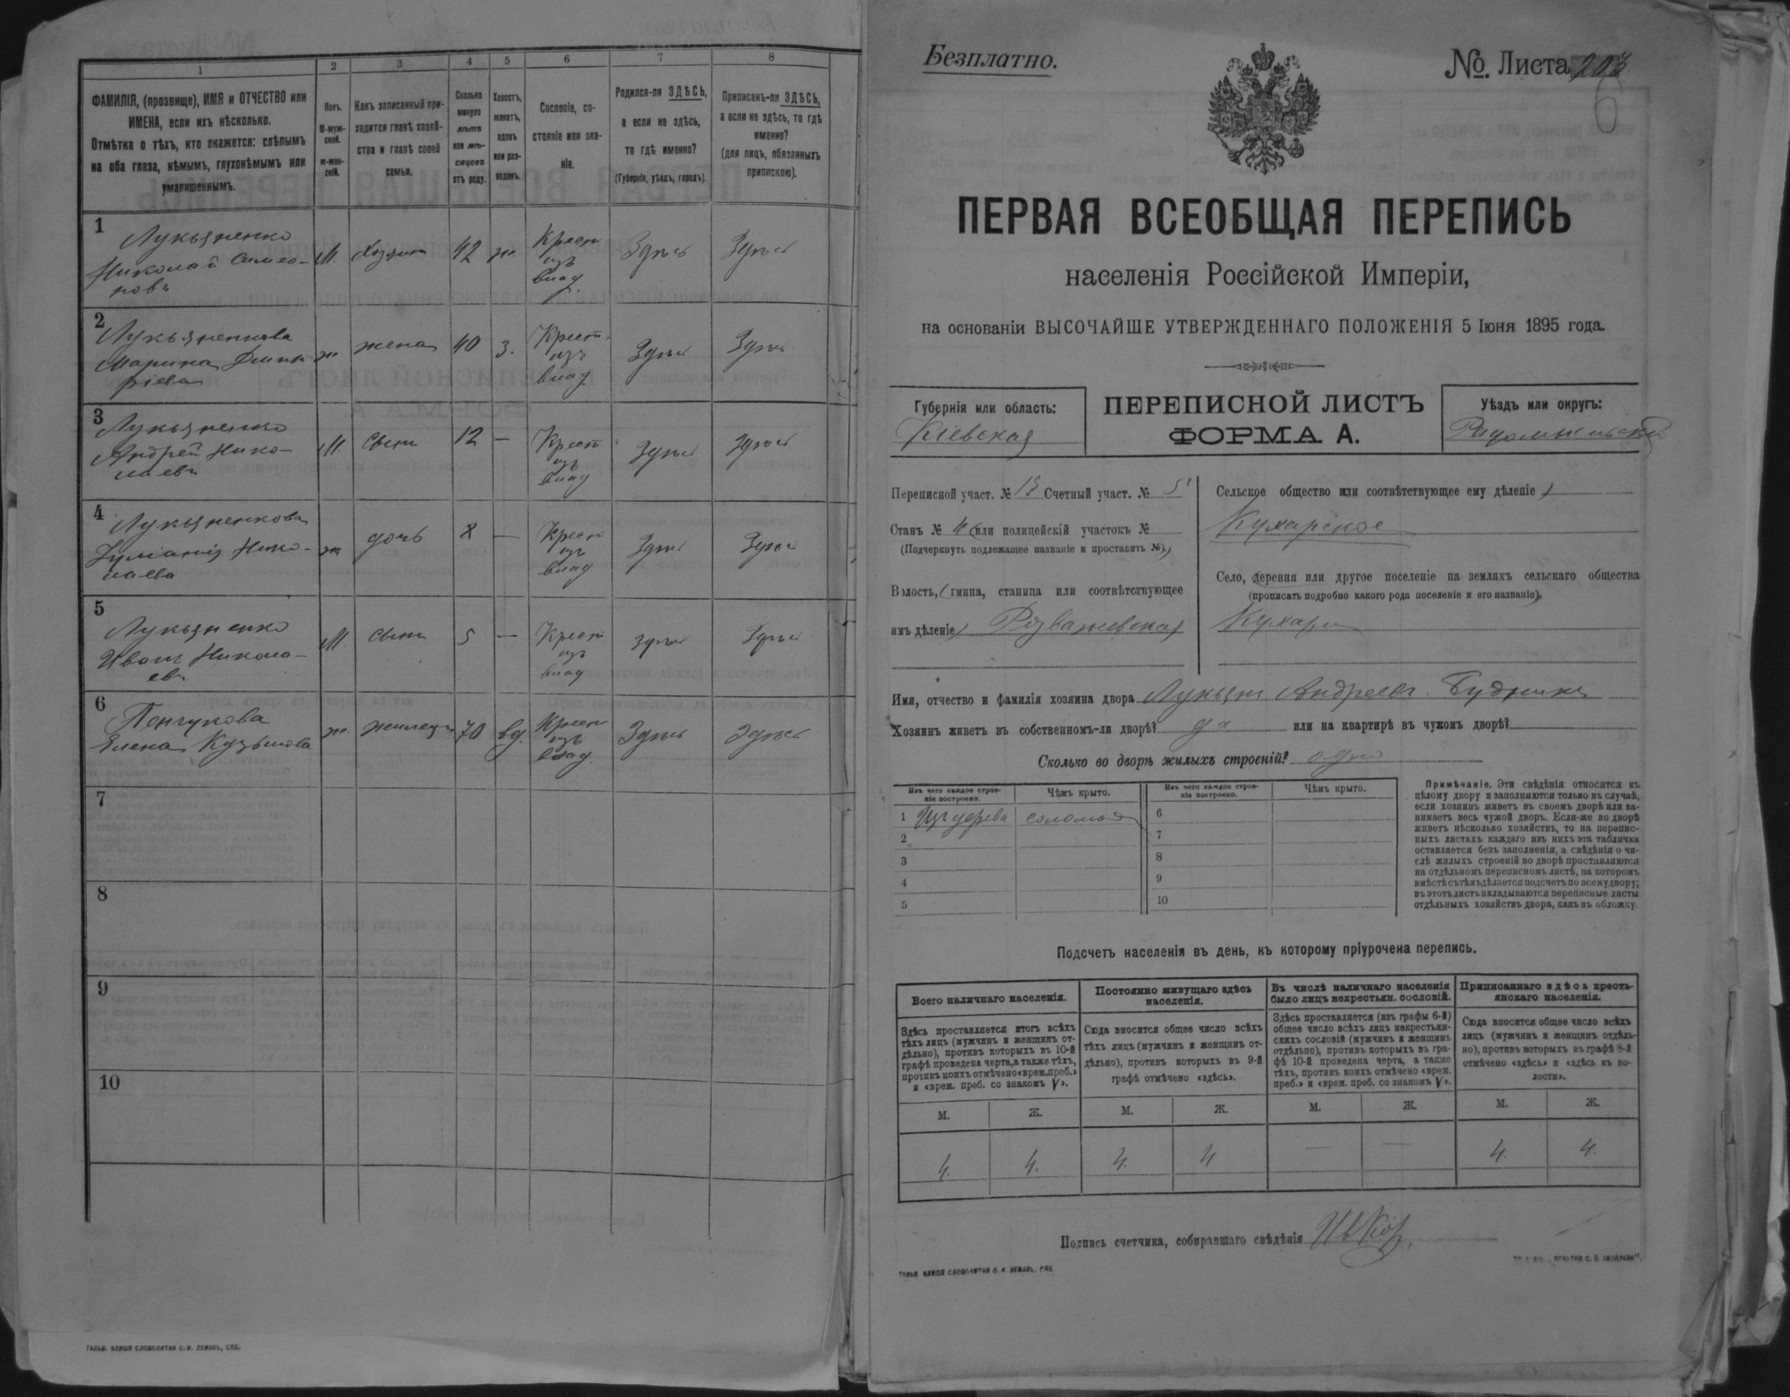 1
2
3
4
5
6
7
8
ФАМИЛІЯ, (прозвище), ИМЯ и ОТЧЕСТВО или
ИМЕНА, если ихъ нѣсколько.
Отмѣтка о тѣхъ, кто окажется: слѣпымъ
на оба глаза, нѣмымъ, глухонѣмымъ или
умалишеннымъ.
Полъ.
М-муж-
ской.
ж-жен-
скій.
Какъ записанный при-
ходится главѣ хозяй-
ства и главѣ своей
семьи.
Сколько
минуло
лѣтъ
или мѣ-
сяцевъ
отъ роду.
Холостъ,
женатъ,
вдовъ
или раз-
веденъ.
Сословіе, со-
стояніе или зва-
ніе.
Родился-ли ЗДѢСЬ,
а если не здѣсь,
то гдѣ именно?
(Губернія, уѣздъ, городъ).
Приписанъ-ли ЗДѢСЬ,
а если не здѣсь, то гдѣ
именно?
(для лицъ, обязанныхъ
припискою).
1
Лукьяненко
Николай Симео-
новъ
М.
Хозяин
42
ж.
Крест
изъ
влад.
Здѣсь
Здѣсь
2
Лукьяненкова
Марина Дмит-
ріева
ж
жена
40
з.
Крест.
изъ
влад
Здѣсь
Здѣсь
3
Лукьяненко
Андрей Нико-
лаевъ
М.
сынъ
12
—
Крест
изъ
влад
Здѣсь
Здѣсь
4
Лукьяненкова
Нико-
лаева
ж
дочь
8
—
Крест
изъ
влад
Здѣсь
Здѣсь
5
Лукьяненко
Иванъ Никола-
евъ
М
сынъ
5
—
Крест
изъ
влад
Здѣсь
Здѣсь
6
Елена Кузьмова
ж.
жилица
70
вд.
Крест
изъ
влад.
Здѣсь
Здѣсь
7
8
9
10
ГАЛЬВ. КЛИШЕ СЛОВОЛИТНИ О. И. ЛЕМАНЪ, СПБ.
Безплатно.
№ Листа
6
ПЕРВАЯ ВСЕОБЩАЯ ПЕРЕПИСЬ
населенія Россійской Имперіи,
на основаніи ВЫСОЧАЙШЕ УТВЕРЖДЕННАГО ПОЛОЖЕНІЯ 5 Іюня 1895 года.
Губернія или область:
Кіевская
ПЕРЕПИСНОЙ ЛИСТЪ
ФОРМА А.
Уѣздъ или округъ:
Радомысльскій
Переписной участ. № 13 Счетный участ. № 5
Станъ № 4 (или полицейскій участокъ №
(Подчеркнуть подлежащее названіе и проставить №)
Волость, (гмина, станица или соотвѣтствующее
имъ дѣленіе) Розважевская
Сельское общество или соотвѣтствующее ему дѣленіе
Кухарское
Село, деревня или другое поселеніе на земляхъ сельскаго общества
(прописать подробно какого рода поселеніе и его названіе).
Кухари
Имя, отчество и фамилія хозяина двора Лукьян Андреевъ
Хозяинъ живетъ въ собственномъ-ли дворѣ? да или на квартирѣ въ чужомъ дворѣ?
Сколько во дворѣ жилыхъ строеній? одно
Изъ чего каждое строе-
ніе построено.
Чѣмъ крыто.
Изъ чего каждое строе-
ніе построено.
Чѣмъ крыто.
1 Изъ дерева соломой
2
3
4
5
6
7
8
9
10
Примѣчаніе. Эти свѣдѣнія относятся къ
цѣлому двору и заполняются только въ случаѣ,
если хозяинъ живетъ въ своемъ дворѣ или за-
нимаетъ весь чужой дворъ. Если-же во дворѣ
живетъ нѣсколько хозяйствъ, то на перепис-
ныхъ листахъ каждаго изъ нихъ эта табличка
оставляется безъ заполненія, а свѣдѣнія о чи-
слѣ жилыхъ строеній во дворѣ проставляются
на отдѣльномъ переписномъ листѣ, на которомъ
вмѣстѣ съ тѣмъ дѣлается подсчетъ по всему двору;
въ этотъ листъ вкладываются переписные листы
отдѣльныхъ хозяйствъ двора, какъ въ обложку.
Подсчетъ населенія въ день, къ которому пріурочена перепись.
Всего наличнаго населенія.
Постоянно живущаго здѣсь
населенія.
Въ числѣ наличнаго населенія
было лицъ некрестьян. сословій.
Приписаннаго здѣсь кресть-
янскаго населенія.
Здѣсь проставляется итогъ всѣхъ
тѣхъ лицъ (мужчинъ и женщинъ от-
дѣльно), противъ которыхъ въ 10-й
графѣ проведена черта, а также тѣхъ,
противъ коихъ отмѣчено «врем. преб.»
и «врем. преб. со знакомъ V».
Сюда вносится общее число всѣхъ
тѣхъ лицъ (мужчинъ и женщинъ от-
дѣльно), противъ которыхъ въ 9-й
графѣ отмѣчено «здѣсь».
Здѣсь проставляется (изъ графы 6-й)
общее число всѣхъ лицъ некрестьян-
скихъ сословій (мужчинъ и женщинъ
отдѣльно), противъ которыхъ въ гра-
фѣ 10-й проведена черта, а также
тѣхъ, противъ коихъ отмѣчено «врем.
преб.» и «врем. преб. со знакомъ V».
Сюда вносится общее число всѣхъ
лицъ (мужчинъ и женщинъ отдѣль-
но), противъ которыхъ въ графѣ 8-й
отмѣчено «здѣсь» и «здѣсь къ во-
лости».
М.
Ж.
М.
Ж.
М.
Ж.
М.
Ж.
4.
4.
4.
4
—
—
4.
4.
Подпись счетчика, собиравшаго свѣдѣнія
ГАЛЬВ. КЛИШЕ СЛОВОЛИТНИ О. И. ЛЕМАНЪ, СПБ.